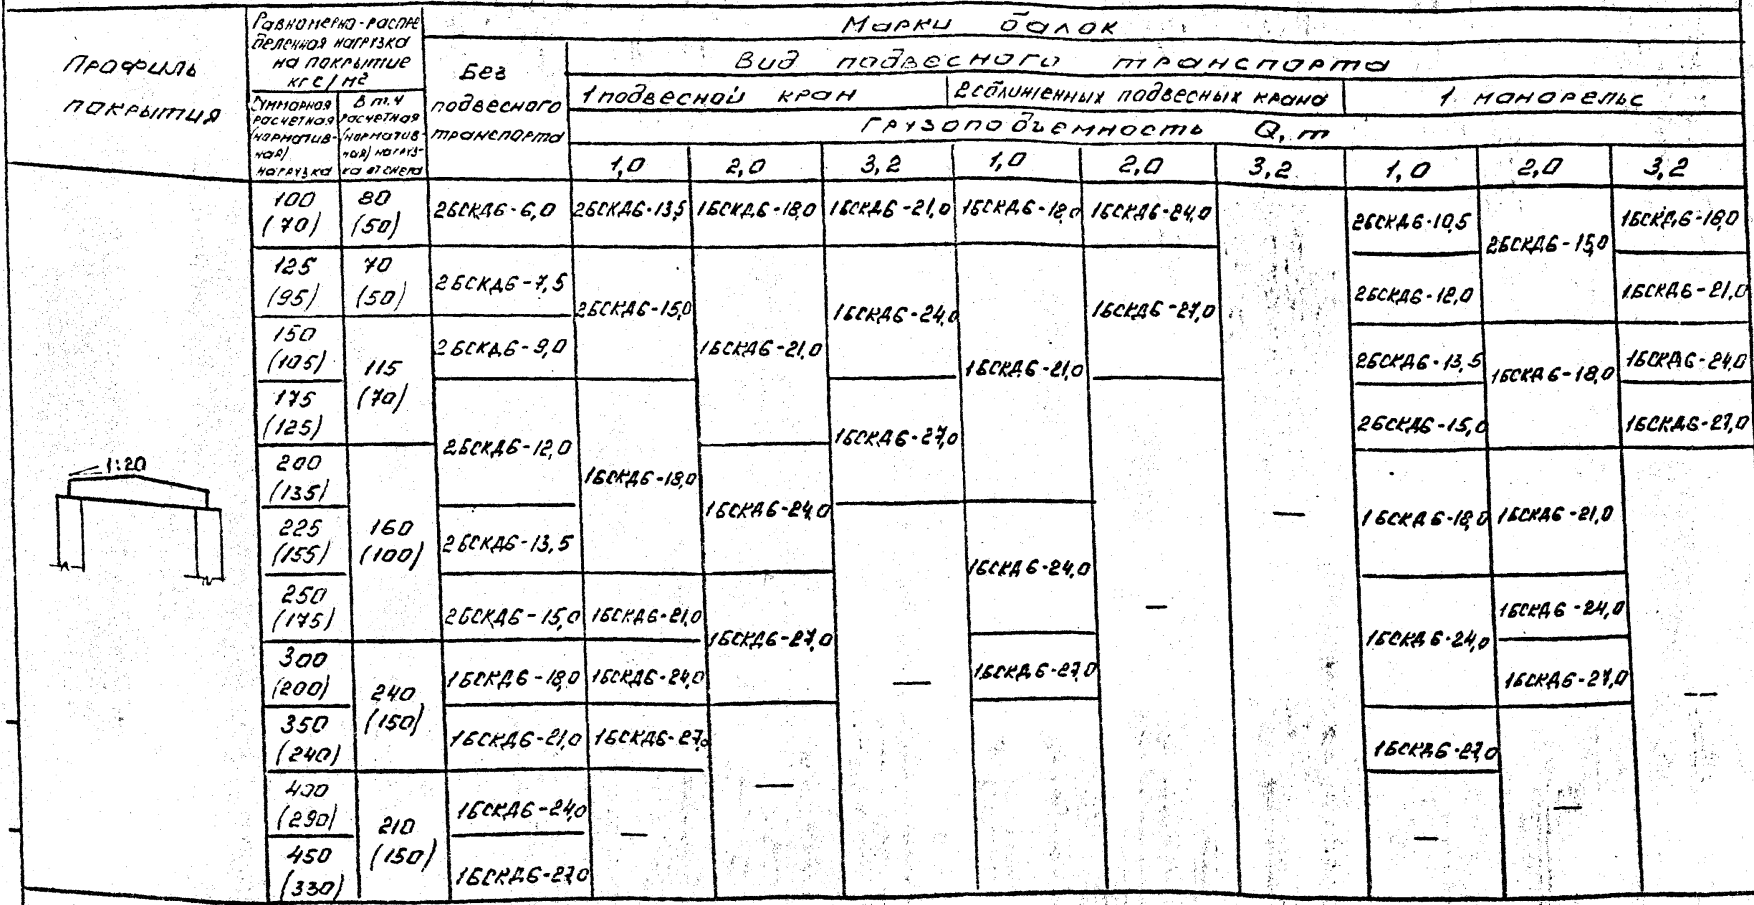 Профиль
покрытия
Равномерно-распре
деленная нагрузка
на покрытие
кгс/м²
Суммарная
расчетная
(норматив-
ная)
нагрузка
в т.ч
расчетная
(норматив-
ная) нагруз-
ка от снега
Марки балок
Без
подвесного
транспорта
Вид подвесного транспорта
1 подвесной кран
2 сближенных подвесных крана
1 монорельс
Грузоподъемность Q, т
1,0 2,0 3,2 1,0 2,0 3,2 1,0 2,0 3,2
1:20
100 80
(70) (50)
2БСКД6-6,0 2БСКД6-13,5 1БСКД6-18,0 1БСКД6-21,0 1БСКД6-18,0 1БСКД6-24,0 2БСКД6-10,5 2БСКД6-15,0 1БСКД6-18,0
125 70
(95) (50)
2БСКД6-7,5 2БСКД6-15,0 1БСКД6-24,0 1БСКД6-27,0 2БСКД6-12,0 1БСКД6-21,0
150
(105)
115
(70)
2БСКД6-9,0 1БСКД6-21,0 1БСКД6-21,0 2БСКД6-13,5 1БСКД6-18,0 1БСКД6-24,0
175
(125)
2БСКД6-12,0 1БСКД6-27,0 2БСКД6-15,0 1БСКД6-27,0
200
(135)
1БСКД6-18,0 1БСКД6-24,0 — 1БСКД6-18,0 1БСКД6-21,0
225 160
(155) (100)
2БСКД6-13,5 1БСКД6-24,0
250
(175)
2БСКД6-15,0 1БСКД6-21,0 1БСКД6-27,0 — 1БСКД6-24,0 1БСКД6-24,0
300
(200)
240
(150)
1БСКД6-18,0 1БСКД6-24,0 — 1БСКД6-27,0 1БСКД6-27,0 —
350
(240)
1БСКД6-21,0 1БСКД6-27,0 1БСКД6-27,0
400
(290)
210
(150)
1БСКД6-24,0 — — — —
450
(330)
1БСКД6-27,0